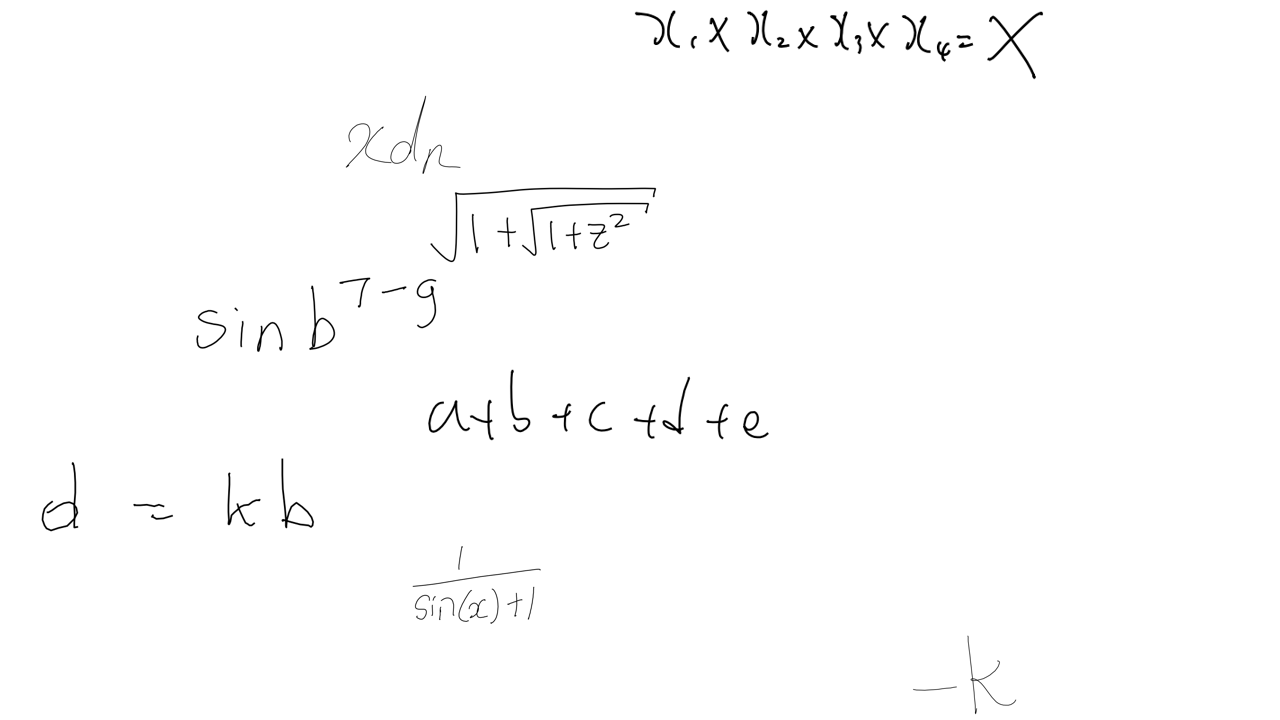 x₁ × x₂ × x₃ × x₄ = X
xdn
√(1+√(1+z²))
sin b⁷⁻⁹
a+b+c+d+e
d = kb
1/(sin(x)+1)
-k